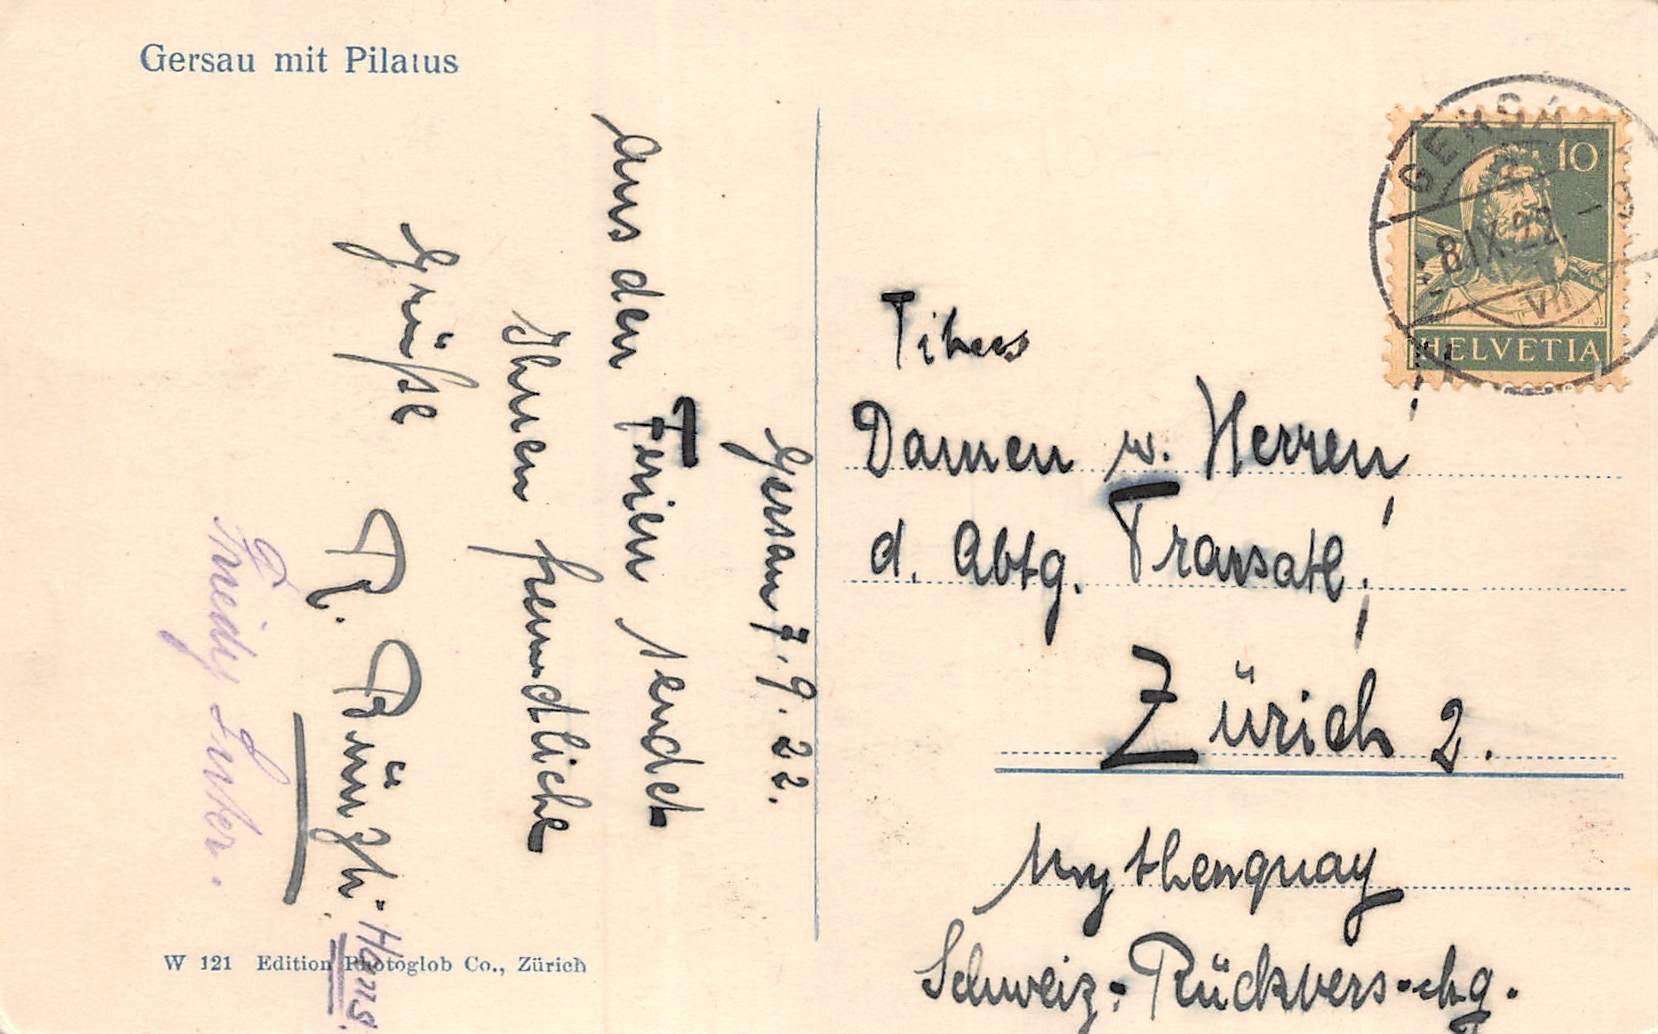 Gersau mit Pilatus
Gersau 7.9.22.
Aus den Ferien sendet
Ihnen freundliche
Grüße
R.
Hans.
W 121 Edition Photoglob Co., Zürich
GERSAU
8.IX.22.
VII
10
HELVETIA
Damen u. Herren,
d. Abtg. Transatl.,
Zürich 2.
Mythenquay
Schweiz. Rückvers.-chg.